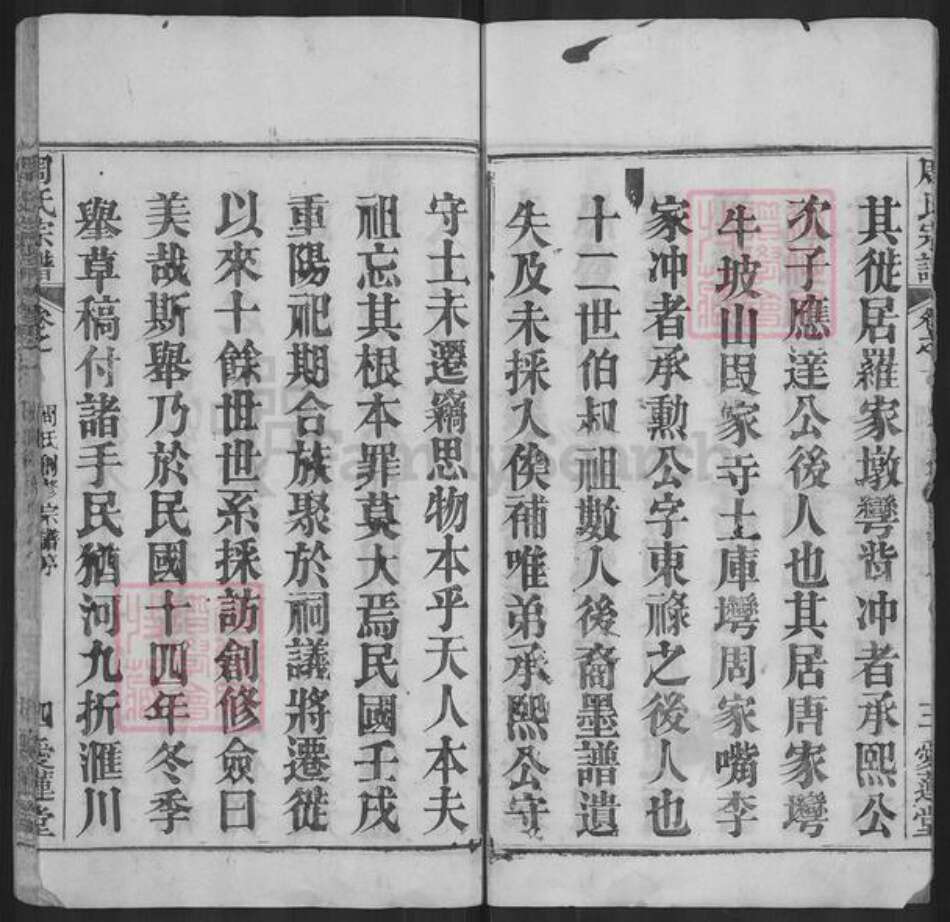 其徙居羅家墩彎背冲者承熙公
次子應達公後人也其居唐家彎
牛坡山段家寺土庫塆周家嘴李
家冲者承勳公字東祿之後人也
十二世伯叔祖數人後裔墨譜遺
失及未採入俟補唯弟承熙公守
守土未遷竊思物本乎天人本夫
祖忘其根本罪莫大焉民國壬戌
重陽祀期合族聚於祠議將遷徙
以來十餘世世系採訪創修僉曰
美哉斯舉乃於民國十四年冬季
舉草稿付諸手民猶河九折滙川
周氏宗譜
卷之
周氏創修宗譜序
三 愛蓮堂
四 愛蓮堂
FamilySearch